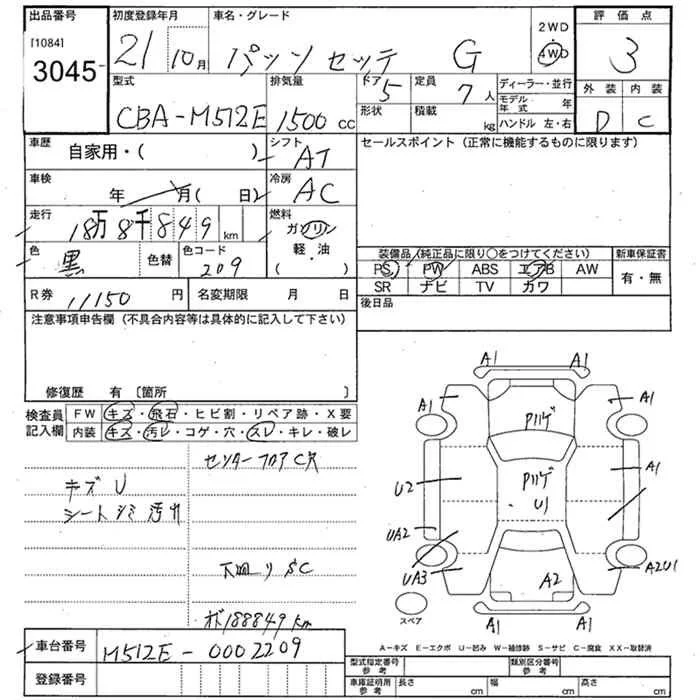 出品番号 初度登録年月 車名・グレード 2WD 評価点
[1084] 3045- 21 10月 パッソ セッテ G 4WD 3
型式 排気量 ドア 5 定員 7人 ディーラー・並行 外装 内装
CBA-M512E 1500cc 形状 積載 kg モデル年式 年 ハンドル 左・右 D C
車歴 自家用・( ) シフト AT セールスポイント (正常に機能するものに限ります)
車検 年 月( 日) 冷房 AC
走行 18万8千849km 燃料 ガソリン
軽・油
( )
色 黒 色替 色コード 209
装備品(純正品に限り○をつけてください) 新車保証書
PS PW ABS エアB AW 有・無
SR ナビ TV カワ
R券 11150円 名変期限 月 日 後日品
注意事項申告欄 (不具合内容等は具体的に記入して下さい)
修復歴 有 〔箇所 〕
検査員記入欄 FW キズ・飛石・ヒビ割・リペア跡・X要
内装 キズ・汚レ・コゲ・穴・スレ・キレ・破レ
センターフロアC穴
キズ U
シートシミ汚れ
下回りSC
メーター188849km
A1 A1
A1 A1
Pハゲ
U2 Pハゲ A1
U1
UA2
UA3 A2 A2U1
スペア A1 A1
A-キズ E-エクボ U-凹み W-補修跡 S-サビ C-腐食 XX-取替済
車台番号 M512E-0002209
型式指定番号 参考 類別区分番号 参考
登録番号 車庫証明用 参考 長さ cm 幅 cm 高さ cm